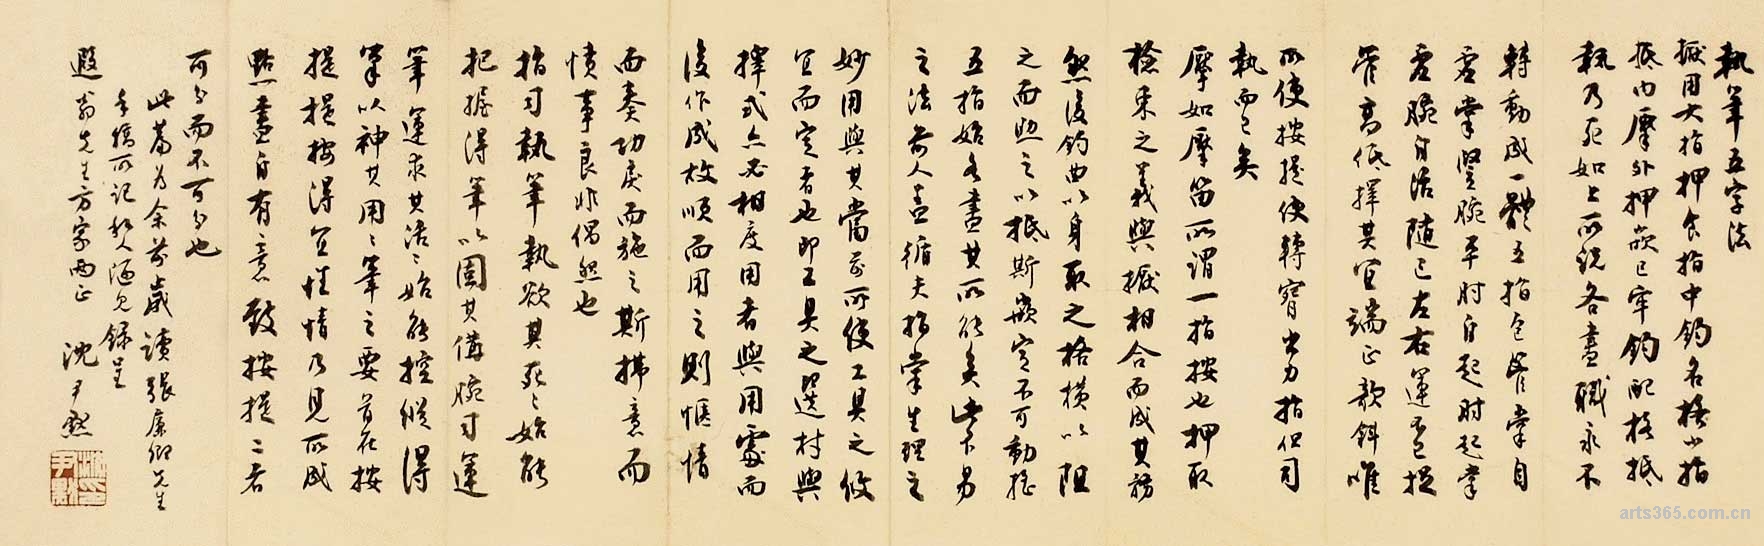 執筆五字法
擫用大指押食指中鈎名格小指
抵內擫外押嵌已牢鈎配格抵
執乃死如上所說各盡職永不
轉動成一體五指包管掌自
虛掌豎腕平肘自起肘起掌
虛腕自活隨己左右運否己捉
管高低擇其宜端正欹斜唯
所使按提使轉腎出力指但司
執而已矣
擫如擫笛所謂一指按也押取
檢束之義與擫相合而成其務
然後鈎曲以身取之格橫以阻
之而與之以抵斯嵌定不可動搖
五指始各盡其所能矣此不易
之法前人盖循夫指掌生理之
妙用與其當前所使工具之攸
宜而定者也即工具之選材與
擇式亦必相度用者與用處而
後作成故順而用之則愜情
而奏功戾而施之斯拂意而
僨事良非偶然也
指司執筆執欲其死死始能
把握得筆以固其構腕司運
筆運求其活活始能控縱得
筆以神其用用筆之要首在按
提提按得宜性情乃見所成
點畫自有意致按提二者
可分而不可分也
此篇為余前歲讀張廉卿先生
手稿所記於人海書錄呈
遐翁先生方家兩正 沈尹默
沈尹默
arts365.com.cn